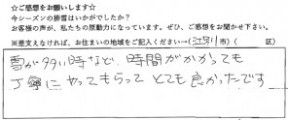 ☆ご感想をお願いします☆
今シーズンの除雪はいかがでしたか？
お客様の声が、私たちの原動力になっています。ぜひ、ご感想をお聞かせ下さい。
※差支えなければ、お住まいの地域をご記入ください→(江別 市)( 区)
雪が多い時など、時間がかかっても
丁寧にやってもらってとても良かったです